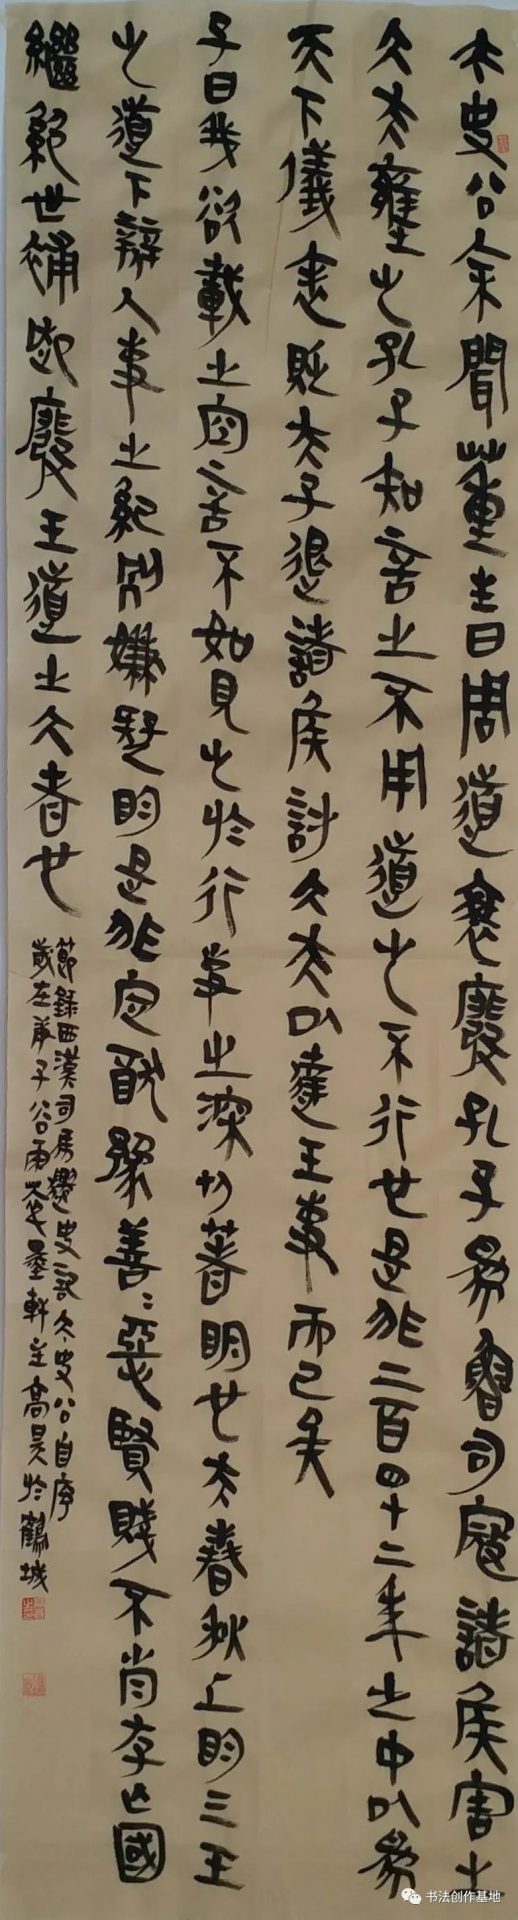 太史公余聞董生曰周道衰廢孔子為魯司寇諸侯害之
大夫壅之孔子知言之不用道之不行也是非二百四十二年之中以為
天下儀表貶天子退諸侯討大夫以達王事而已矣
子曰我欲載之空言不如見之於行事之深切著明也夫春秋上明三王
之道下辨人事之紀別嫌疑明是非定猶豫善〻惡賢賤不肖存亡國
繼絕世補起廢王道之大者也
節錄西漢司馬遷史記太史公自序
歲在庚子谷雨墨軒主高昊於鶴城
书法创作基地